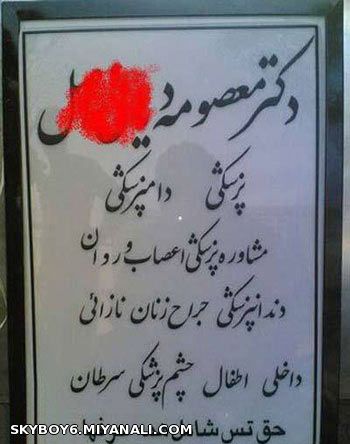 دکتر معصومه
پزشکی دامپزشکی
مشاوره پزشکی اعصاب و روان
دندانپزشکی جراح زنان نازائی
داخلی اطفال چشم پزشکی سرطان
حق تس
SKYBOY6.MIYANALI.COM